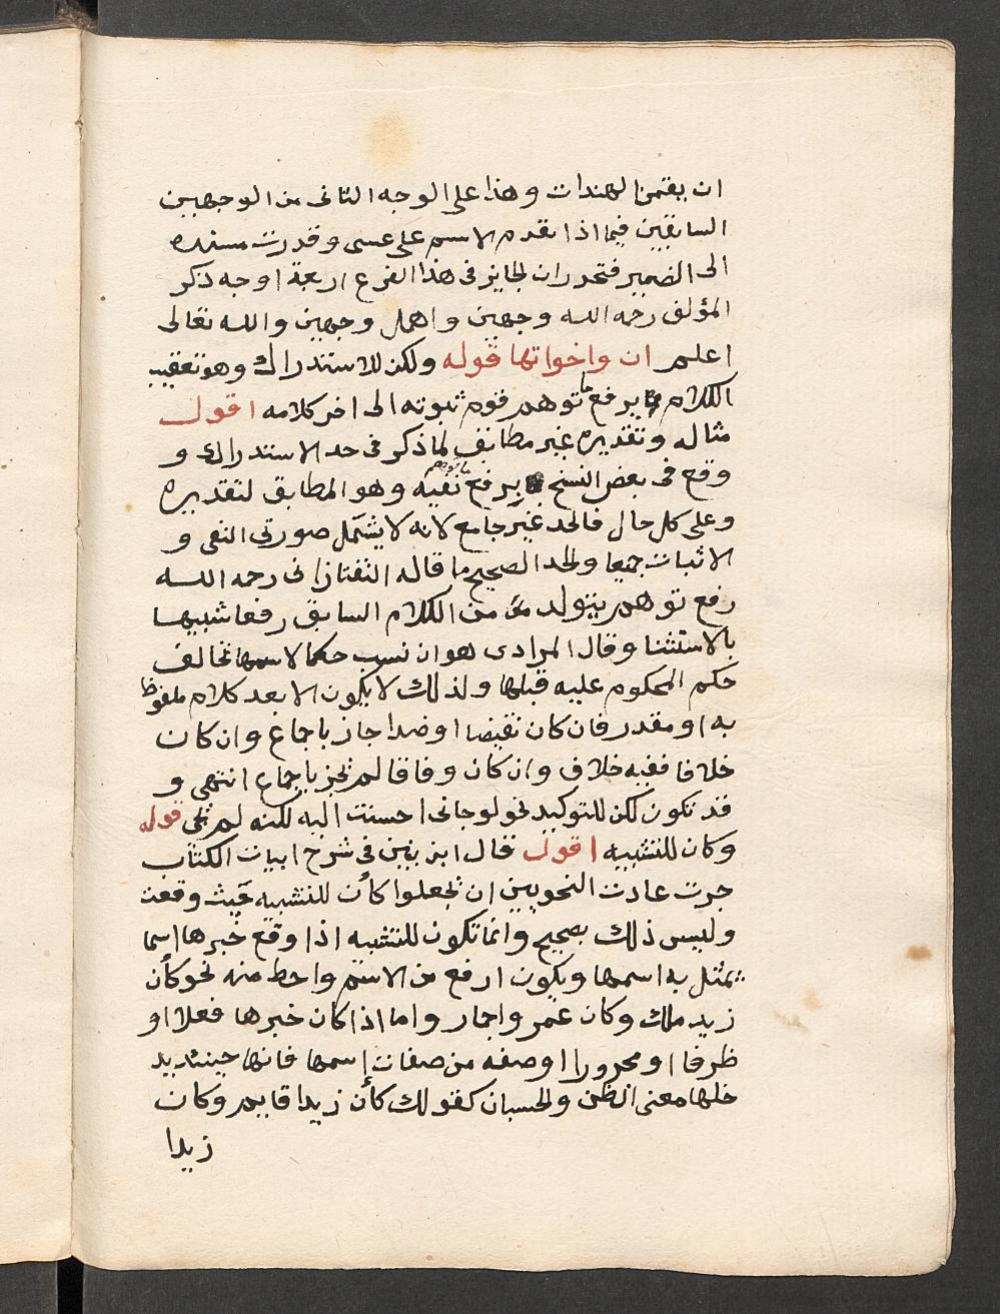 ان يقمن الهندات وهذا على الوجه الثانى من الوجهين
السابقين فيما اذا تقدم الاسم على عسى وقدرت مسنده
الى الضمير فتحرر ان الجايز فى هذا الفرع اربعة اوجه ذكر
المؤلف رحمه الله وجهين واهمل وجهين والله تعالى
اعلم ان واخواتها قوله ولكن للاستدراك وهو تعقيب
الكلام برفع ما توهم ثبوته الى اخر كلامه اقول
مثاله وتقديره غير مطابق لما ذكر فى حد الاستدراك و
وقع فى بعض النسخ برفع ما توهم نفيه وهو المطابق لتقديره
وعلى كل حال فالحد غير جامع لانه لا يشمل صورتى النفى و
الاثبات جميعا والحد الصحيح ما قاله التفتازانى رحمه الله
رفع توهم يتولد من الكلام السابق رفعا شبيها
بالاستثنا وقال المرادى هو ان نسب حكما لاسمها تخالف
حكم المحكوم عليه قبلها ولذلك لا يكون الا بعد كلام ملفوظ
به او مقدر فان كان نقيضا او ضدا جاز باجماع وان كان
خلافا ففيه خلاف وان كان وفاقا لم تجز باجماع انتهى و
قد تكون لكن للتوكيد نحو لو جانى احسنت اليه لكنه لم يجى قوله
وكان للتشبيه اقول قال ابن يبين فى شرح ابيات الكتاب
جرت عادت النحويين ان يجعلوا كأن للتشبيه حيث وقعت
وليس ذلك بصحيح وانما تكون للتشبيه اذا وقع خبرها اسما
يمثل به اسمها ويكون ارفع من الاسم واحط منه نحو كأن
زيد ملك وكان عمر واحمار واما اذا كان خبرها فعلا او
ظرفا او مجرورا او صفه من صفات اسمها فانها حينئذ يد
خلها معنى الظن والحسبان كقولك كأن زيدا قايم وكان
زيدا